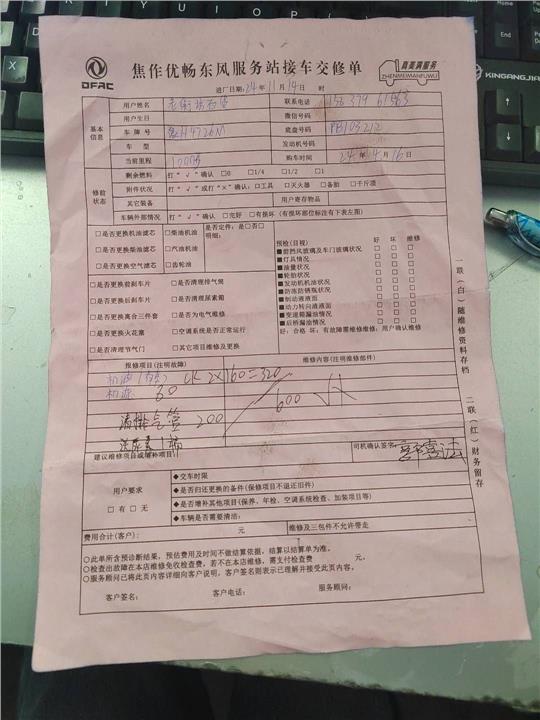 DFAC
焦作优畅东风服务站接车交修单
真美满服务
ZHENMEIMANFUWU
进厂日期:24年11月14日 时
基本信息
用户姓名
联系电话
用户生日
微信号码
车牌号
底盘号码 PB103212
车型
发动机号码
当前里程
购车时间 24年4月16日
修前状态
剩余燃料 打“√”确认 □0 □1/4 □1/2 □1
附件状况 打“√”或打“×”确认:□工具 □灭火器 □备胎 □千斤顶
其它装备
用户寄存物品
车辆外部情况 打“√”确认 □完好 □有损坏(有损坏部位标注有下表左图)
□是否更换机油滤芯 □柴油机油 是否定件:是□否□
明细:
□是否更换柴油滤芯 □汽油机油
□是否更换空气滤芯 □齿轮油
□是否更换前刹车片 □是否清理排气筒
□是否更换后刹车片 □是否清理尿素箱
□是否更换离合三件套 □是否为电气维修
□是否更换火花塞 □空调系统是否正常运行
□是否清理节气门 □其它项目维修及更换
预检(目视) 好 坏 维修
■前挡风玻璃及车门玻璃状况
■灯具情况
■油量状况
■轮胎状况
■发动机机油状况
■防冻防锈瓶状况
■制动液液面
■动力转向液液面
■变速箱漏油情况
■后桥漏油情况
好:合格 坏:有故障需维修维修:用户确认维修
报修项目(注明故障)
维修内容(注明维修部件)
机油 CK 2×160=320
机滤 60
清排气管 200
洗尿素1桶
600
建议维修项目或增补项目:
司机确认签名:
用户要求
□有 □无
◆交车时限
◆是否归还更换的备件(保修项目不退还旧件)
◆是否增补其他项目(保养、年检、空调系统检查、加装项目等)
◆车辆是否需要清洁:
费用合计(客户): 元
维修及三包件不允许带走
○此单所含预诊断结果,预估费用及时间不做结算依据,结算以结算单为准。
○检查出故障在本店维修免收检查费,若不在本店维修,需支付检查费 元。
○服务顾问已将此页内容详细向客户说明,客户签名则表示已理解并接受此页内容。
客户签名: 客户电话: 服务顾问:
一联(白)随维修资料存档
二联(红)财务留存
KINGANGJIA